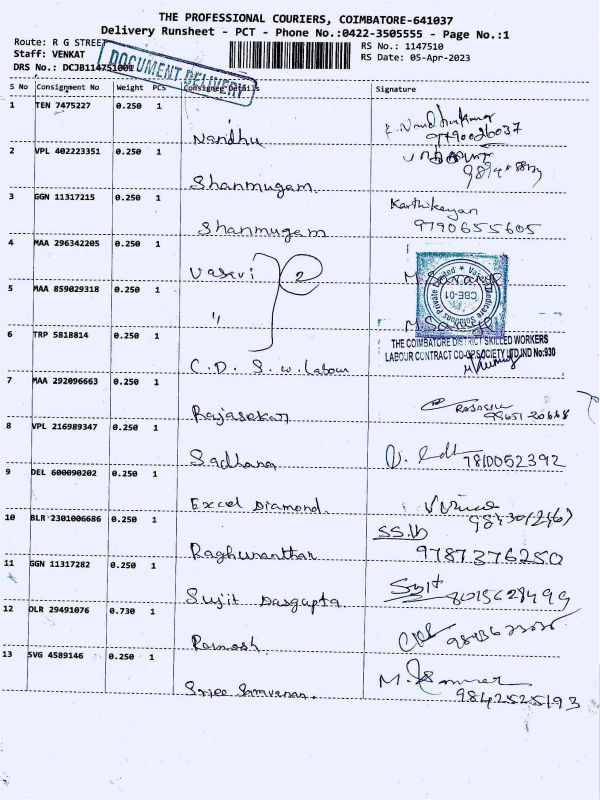 THE PROFESSIONAL COURIERS, COIMBATORE-641037
Delivery Runsheet - PCT - Phone No.:0422-3505555 - Page No.:1
Route: R G STREET
RS No.: 1147510
Staff: VENKAT
RS Date: 05-Apr-2023
DRS No.: DCJB114751001
DOCUMENT DELIVERY
S No Consignment No Weight PCS Consignee Details Signature
1 TEN 7475227 0.250 1
Nandhu
9790026037
2 VPL 402223351 0.250 1
Shanmugam
3 GGN 11317215 0.250 1
Karthikeyan
Shanmugam 9790655605
4 MAA 296342205 0.250 1
Vasvi 2
5 MAA 859029318 0.250 1
"
CBE-01
6 TRP 5818814 0.250 1
THE COIMBATORE DISTRICT SKILLED WORKERS
LABOUR CONTRACT CO-OP SOCIETY LTD, IND No:930
C.D. S. W. Labour
7 MAA 292096663 0.250 1
Rajasekar
8 VPL 216989347 0.250 1
Sadhana 7810052392
9 DEL 600090202 0.250 1
Excel Diamond.
10 BLR 2301006686 0.250 1
Raghunanthan 9787376250
11 GGN 11317282 0.250 1
Sujit Dasgupta Sujit 8015628499
12 OLR 29491076 0.730 1
Ramesh.
13 SVG 4589146 0.250 1
Sree Saravanan. 9842525193